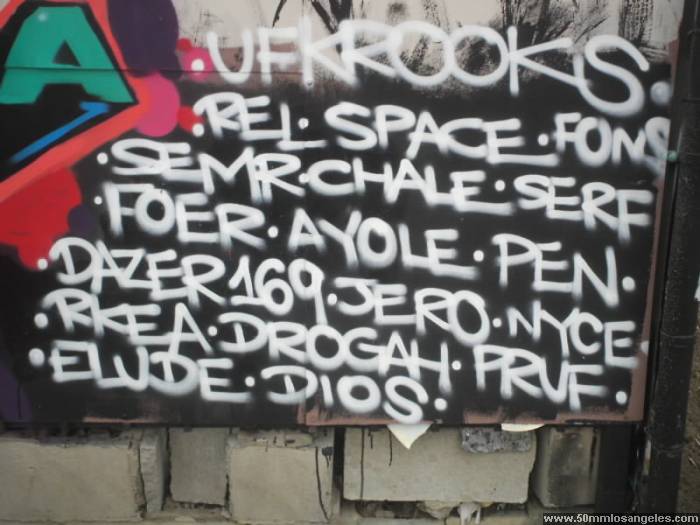 A
. UFKROOKS.
. REL. SPACE. FONS
. SEMR. CHALE. SERF
. FOER. AYOLE. PEN.
. DAZER169. JERO. NYCE
. RKEA. DROGAH. PRVF.
. ELUDE. DIOS.
www.50mmlosangeles.com